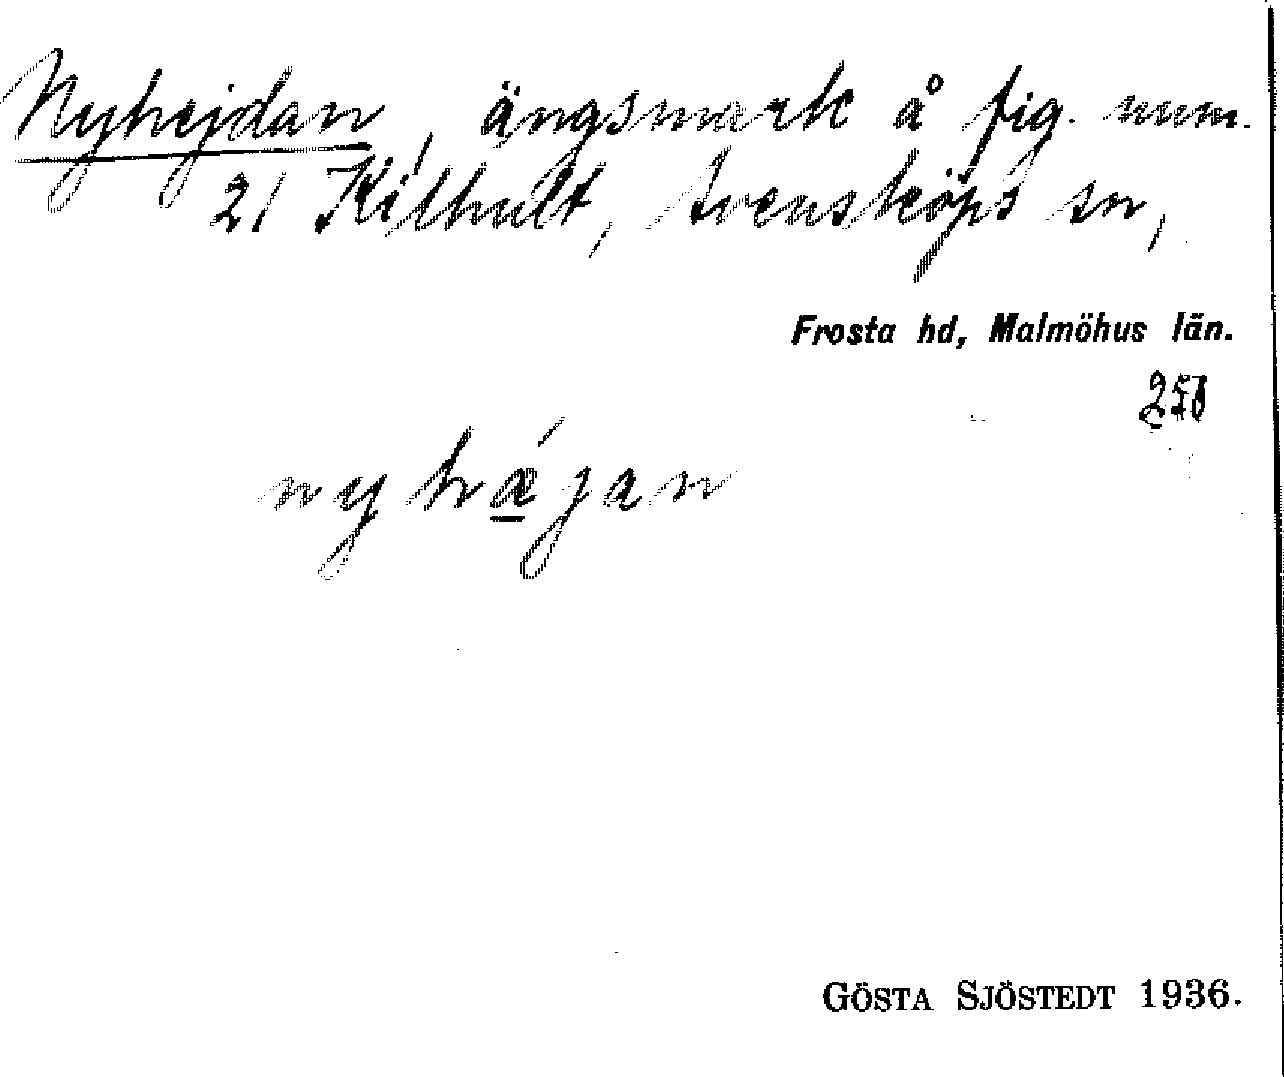 Nyhejdan, ängsmark å fig. num.
21 Kilhult, Svensköps sn,
Frosta hd, Malmöhus län.
ny hǽjan
GÖSTA SJÖSTEDT 1936.